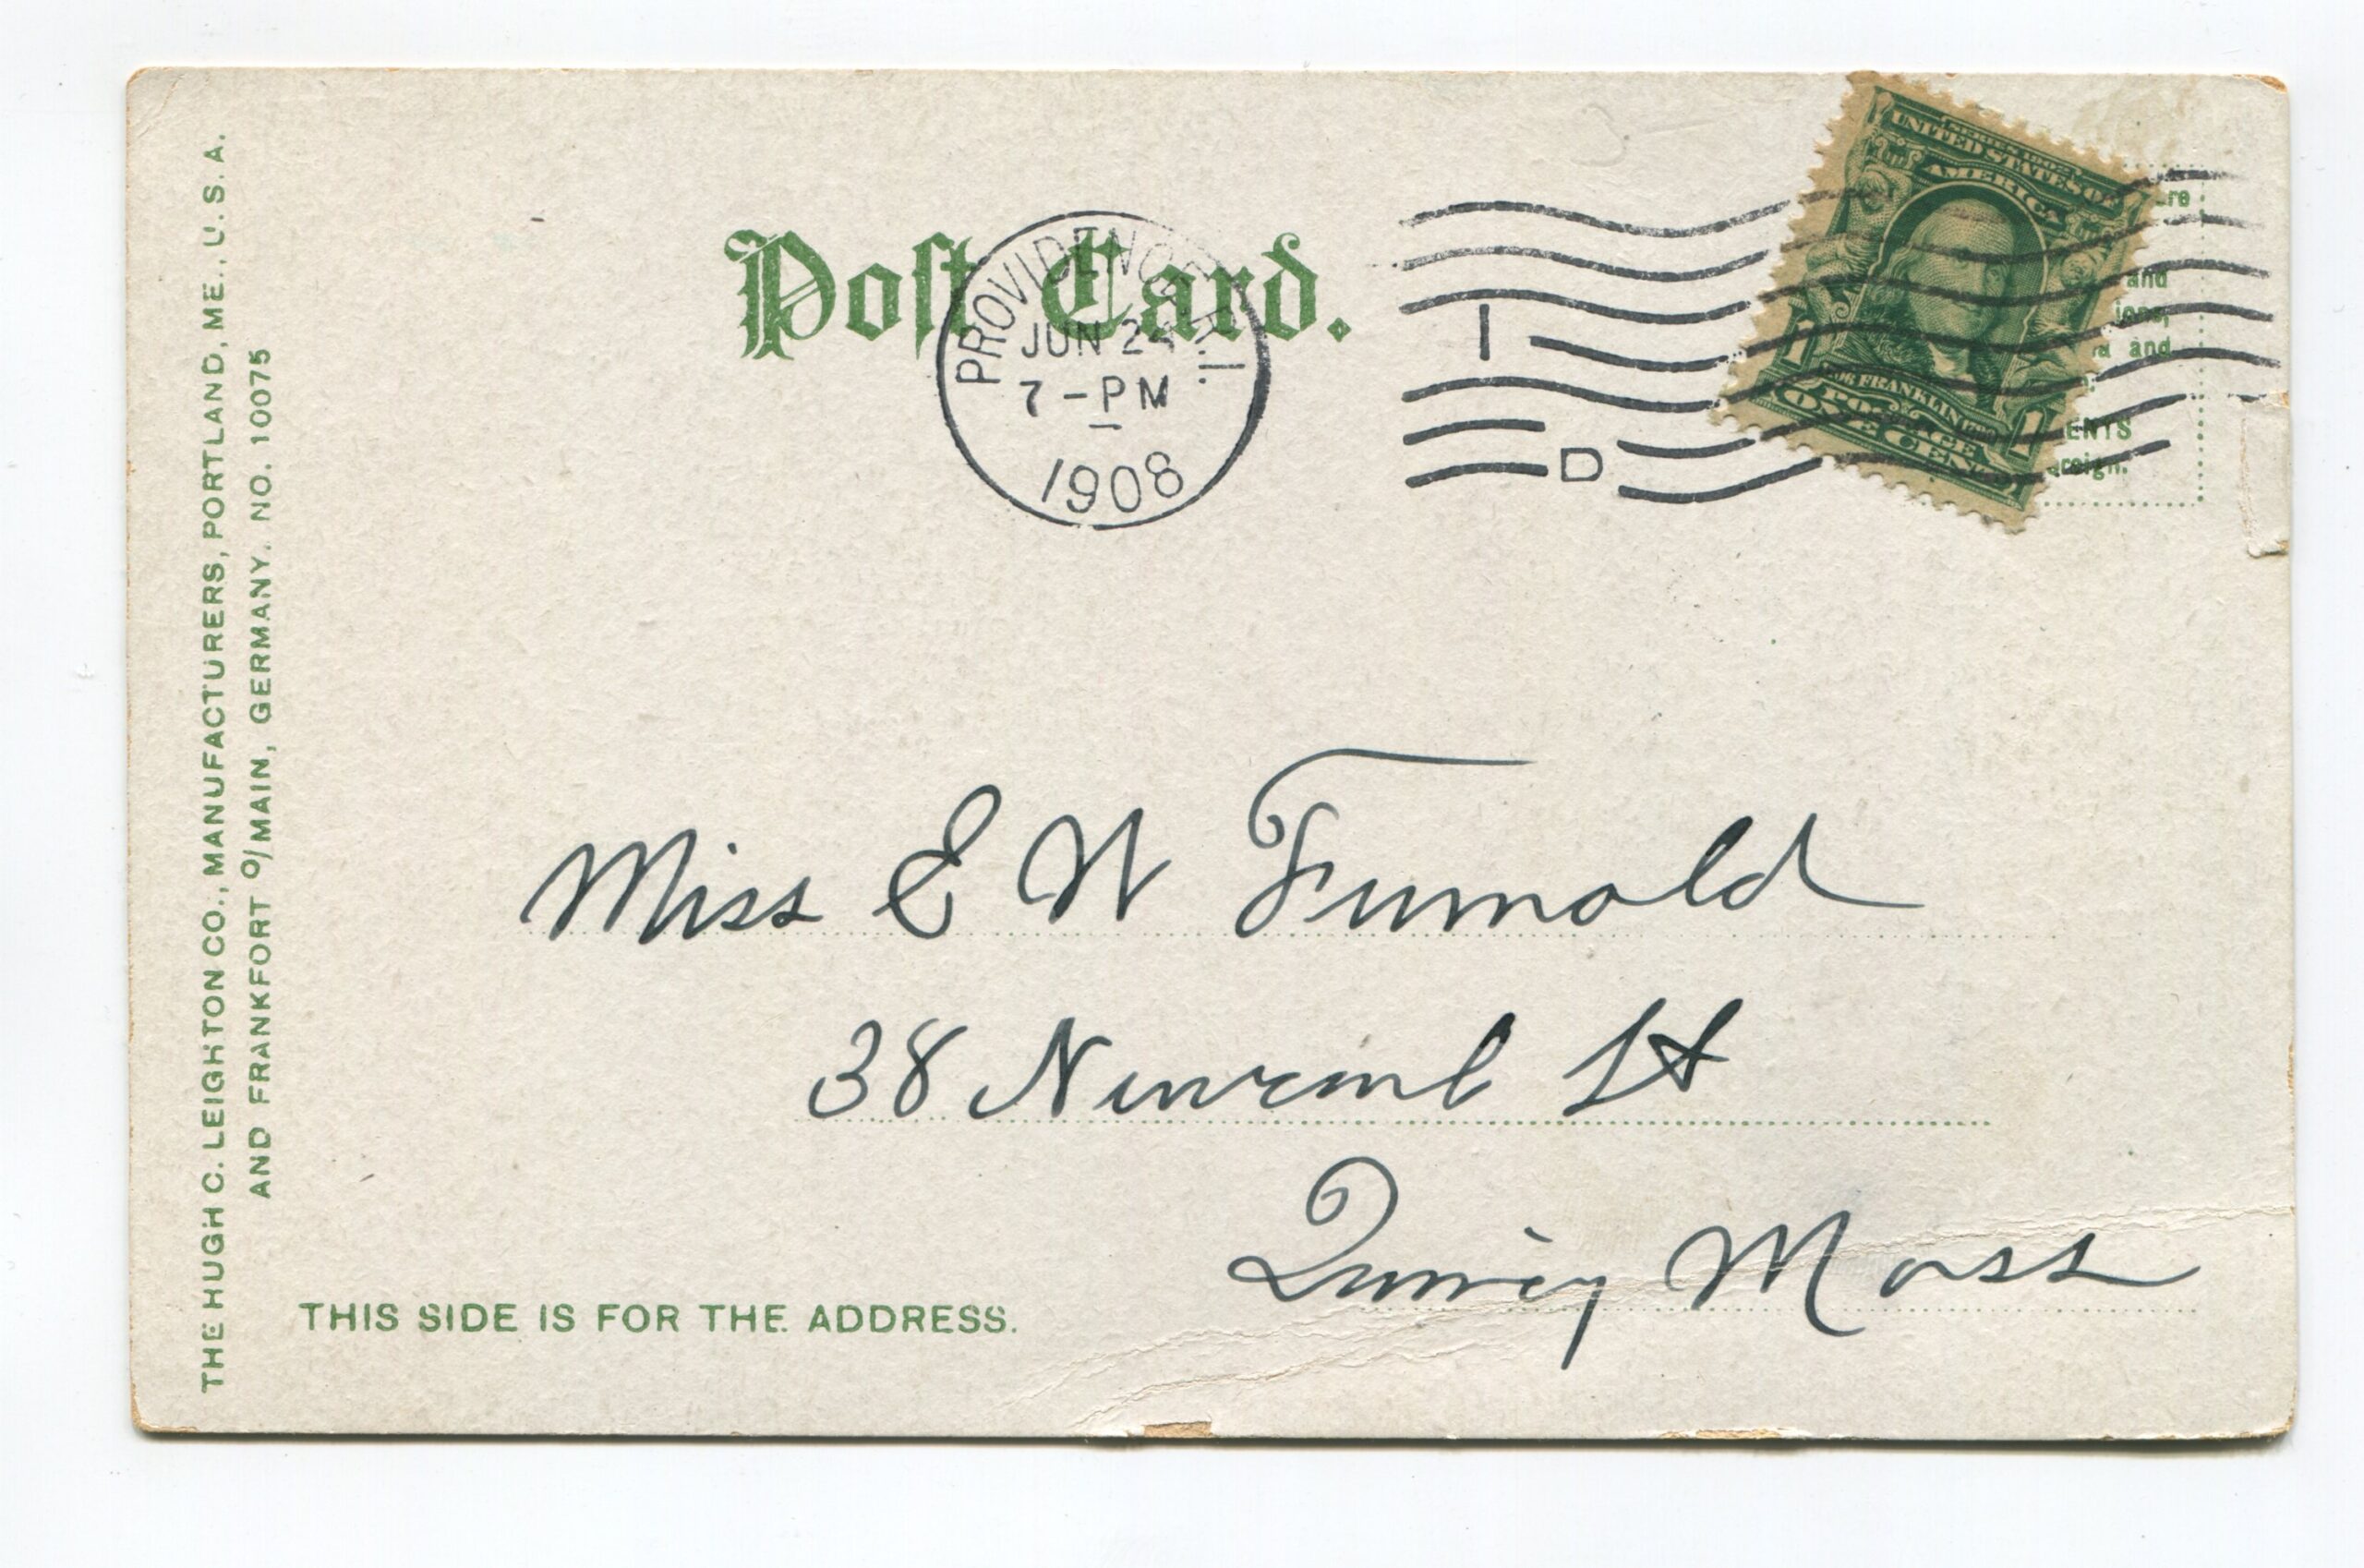 THE HUGH C. LEIGHTON CO., MANUFACTURERS, PORTLAND, ME., U.S.A.
AND FRANKFORT O/MAIN, GERMANY. NO. 10075
Post Card.
PROVIDENCE R.I.
JUN
7-PM
1908
1
D
UNITED STATES OF
AMERICA
FRANKLIN
POSTAGE
1 ONE CENT 1
and
and
Miss E W
38 St
Quincy Mass
THIS SIDE IS FOR THE ADDRESS.